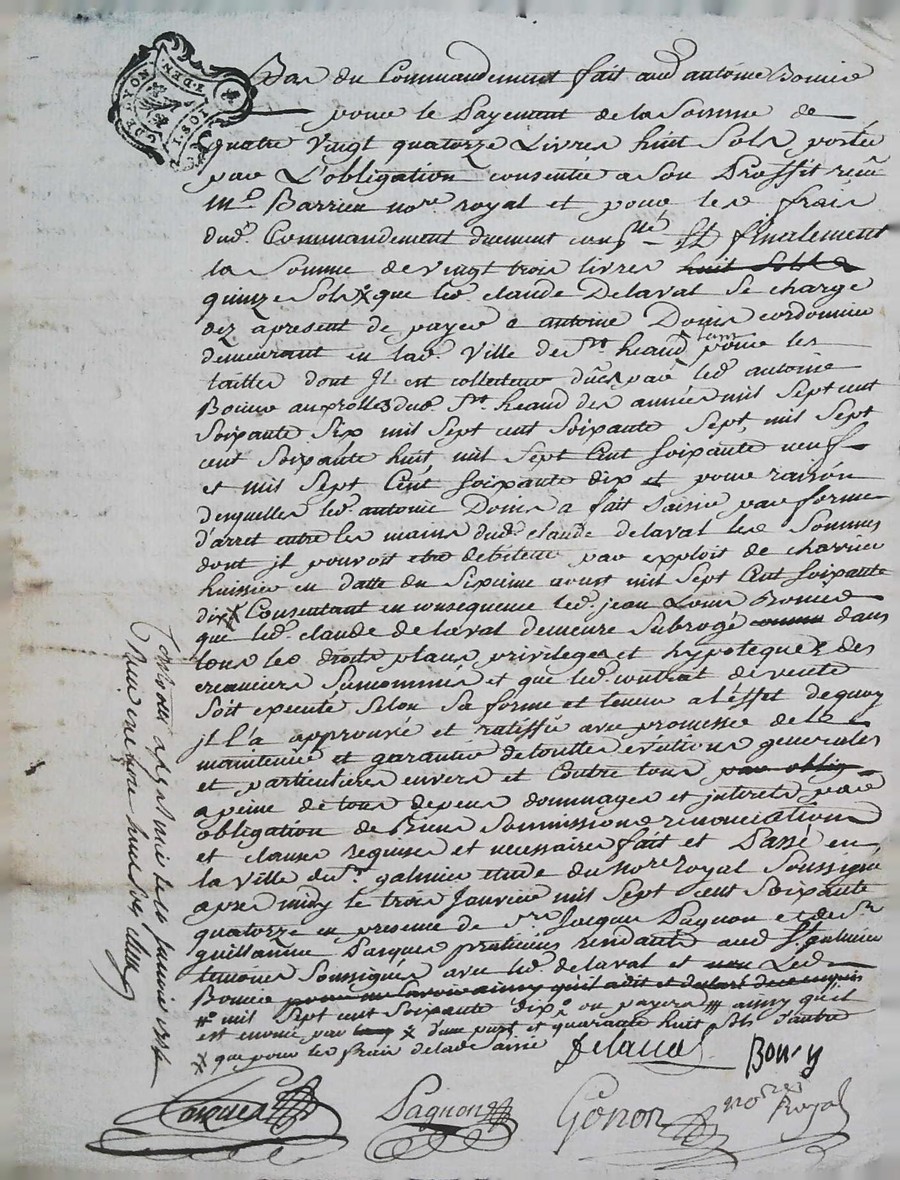 GDE LYON
2.DEN
Bas du Commandement fait aud antoine Bouice
pour le Payement de la Somme de
quatre Vingt quatorze Livres huit Sols portée
par L'obligation consentie a Son Proffit
Me Barrieu nore royal et pour les frais
dud. Commandement duement Et finalement
la Somme de vingt trois livres huit Sols
quinze Sols que led. claude Delaval Se charge
dez apresent de payer a antoine Donis cordonnier
demeurant en lad. Ville de St heand pour les
tailles dont Jl est collecteur dues par led. antoine
Bouice aux rolles dud. St. heand des années mil Sept cent
Soixante Six mil Sept cent Soixante Sept, mil Sept
cent Soixante huit mil Sept Cent Soixante neuf
et mil Sept Cent Soixante dix et pour raison
desquelles led. antoine Donis a fait Saisie par forme
d'arret entre les mains dud. claude delaval les Sommes
dont jl pouvoit etre debiteur par exploit de charrier
huissier en datte du Sixieme aoust mil Sept Cent Soixante
dix Consentant en consequence led. jean Louis Bouice
que led. claude de laval demeure Subrogé comme dans
tous les droits places privileges et hypoteques des
creanciers Surnommés et que led. contrat de vente
Soit executé Selon Sa forme et teneur a l'effet dequoy
jl l'a approuvé et ratiffié avec promesse de le
maintenir et garantir de touttes evictions generales
et particulieres envers et Contre tous par oblig
a peine de tous depens dommages et jnterets par
obligation de Biens Soumissions renonciations
et clauses requises et necessaires fait et Passé en
la Ville de St. galmier etude du nore royal Soussigné
apres midy le trois Janvier mil Sept cent Soixante
quatorze en presence de Sr Jacques Pagnon et de Sr
guillaume Pasquier praticiens residants aud St galmier
temoins Soussignés avec led. delaval et non Led.
Bouice pour ne Savoir ainsy qu'il a dit et declaré de ce enquis
mil Sept cent Soixante dix ou payera ainsy qu'il
est enoncé par d'une part et quarante huit Sols d'autre
que pour les frais de lade Saisie
Delaval
Boury
Pagnon
Gonon
nore Royal